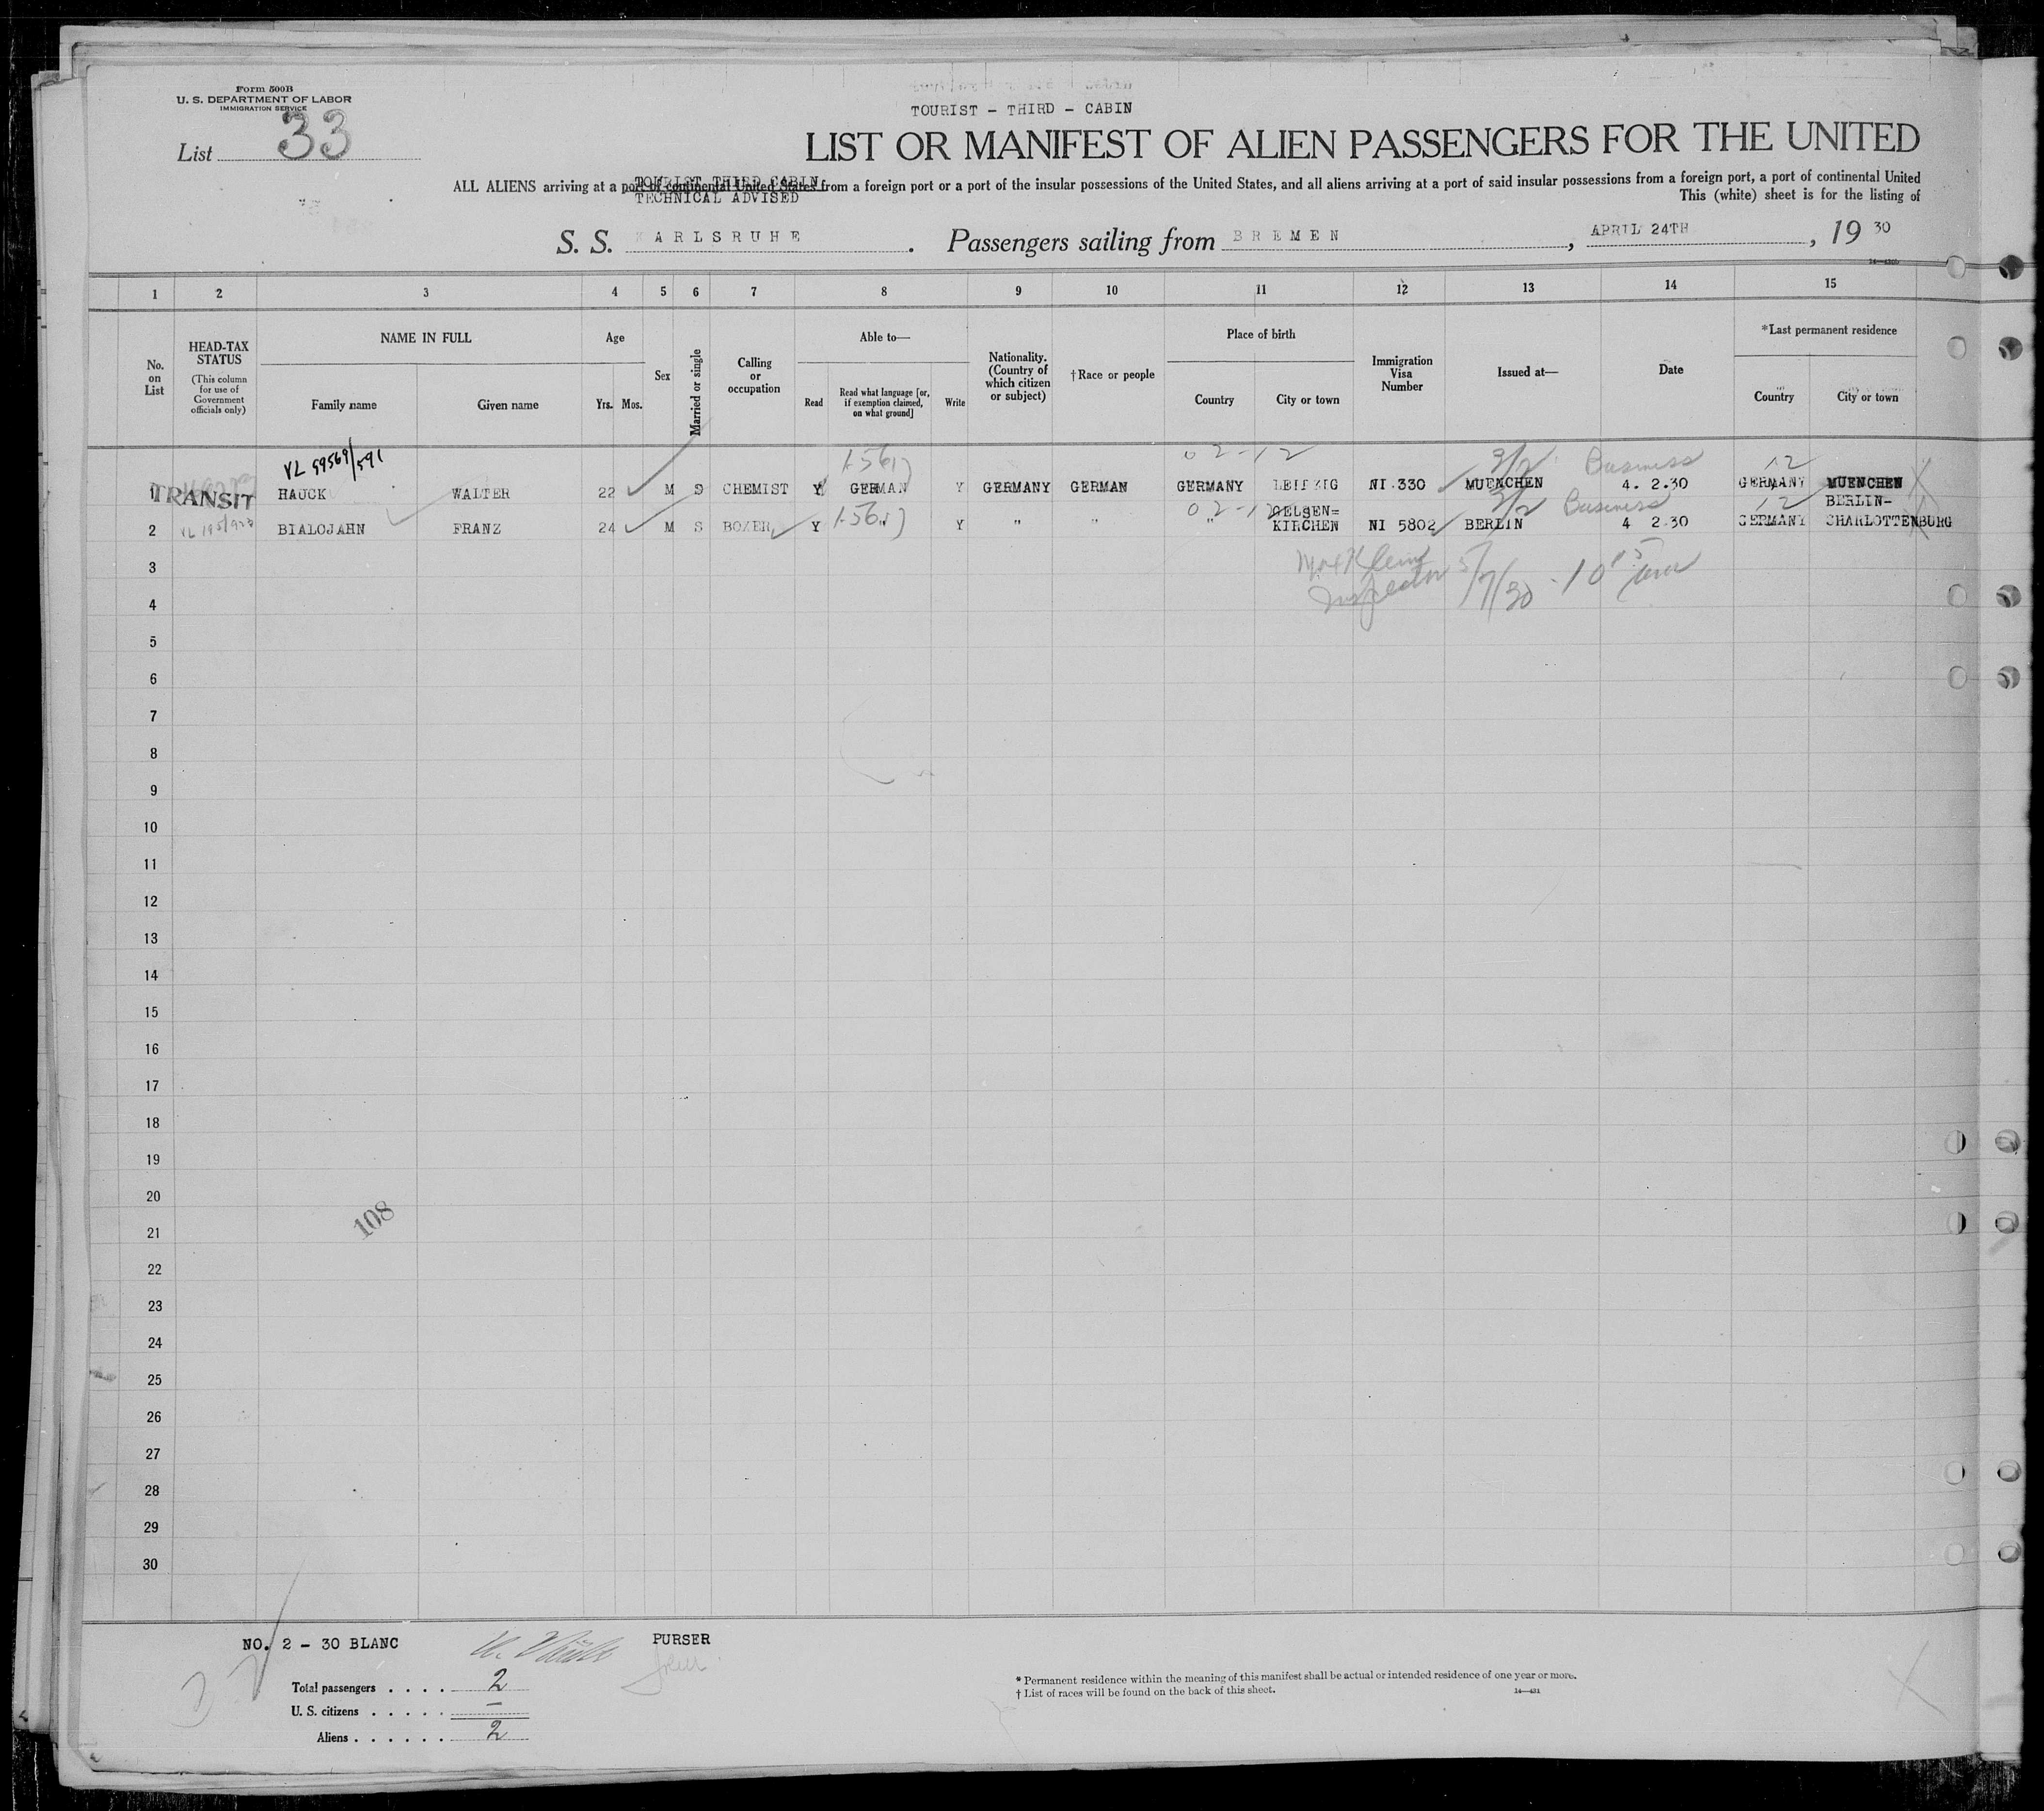 Form 500B
U. S. DEPARTMENT OF LABOR
IMMIGRATION SERVICE
List 33
TOURIST - THIRD - CABIN
LIST OR MANIFEST OF ALIEN PASSENGERS FOR THE UNITED
ALL ALIENS arriving at a port of continental United States from a foreign port or a port of the insular possessions of the United States, and all aliens arriving at a port of said insular possessions from a foreign port, a port of continental United
TOURIST THIRD CABIN
TECHNICAL ADVISED
This (white) sheet is for the listing of
S. S. KARLSRUHE . Passengers sailing from BREMEN , APRIL 24TH , 19 30
1 2 3 4 5 6 7 8 9 10 11 12 13 14 15
No. on List
HEAD-TAX STATUS (This column for use of Government officials only)
NAME IN FULL
Family name Given name
Age
Yrs. Mos.
Sex
Married or single
Calling or occupation
Able to—
Read
Read what language [or, if exemption claimed, on what ground]
Write
Nationality. (Country of which citizen or subject)
†Race or people
Place of birth
Country City or town
Immigration Visa Number
Issued at—
Date
*Last permanent residence
Country City or town
VL 59569/591 02-12 3/2 Business 12
1 TRANSIT HAUCK WALTER 22 M S CHEMIST Y GERMAN Y GERMANY GERMAN GERMANY LEIPZIG NI 330 MUENCHEN 4. 2.30 GERMANY MUENCHEN
3/2 Business 12
2 BIALOJAHN FRANZ 24 M S BOXER Y " Y " " " GELSEN=KIRCHEN NI 5802 BERLIN 4 2 30 GERMANY BERLIN-CHARLOTTENBURG
3
Inspector 5/7/30
4
5
6
7
8
9
10
11
12
13
14
15
16
17
18
19
20
108
21
22
23
24
25
26
27
28
29
30
NO. 2 - 30 BLANC PURSER
Total passengers . . . . 2
U. S. citizens . . . . . —
Aliens . . . . . . 2
* Permanent residence within the meaning of this manifest shall be actual or intended residence of one year or more.
† List of races will be found on the back of this sheet.
14—431